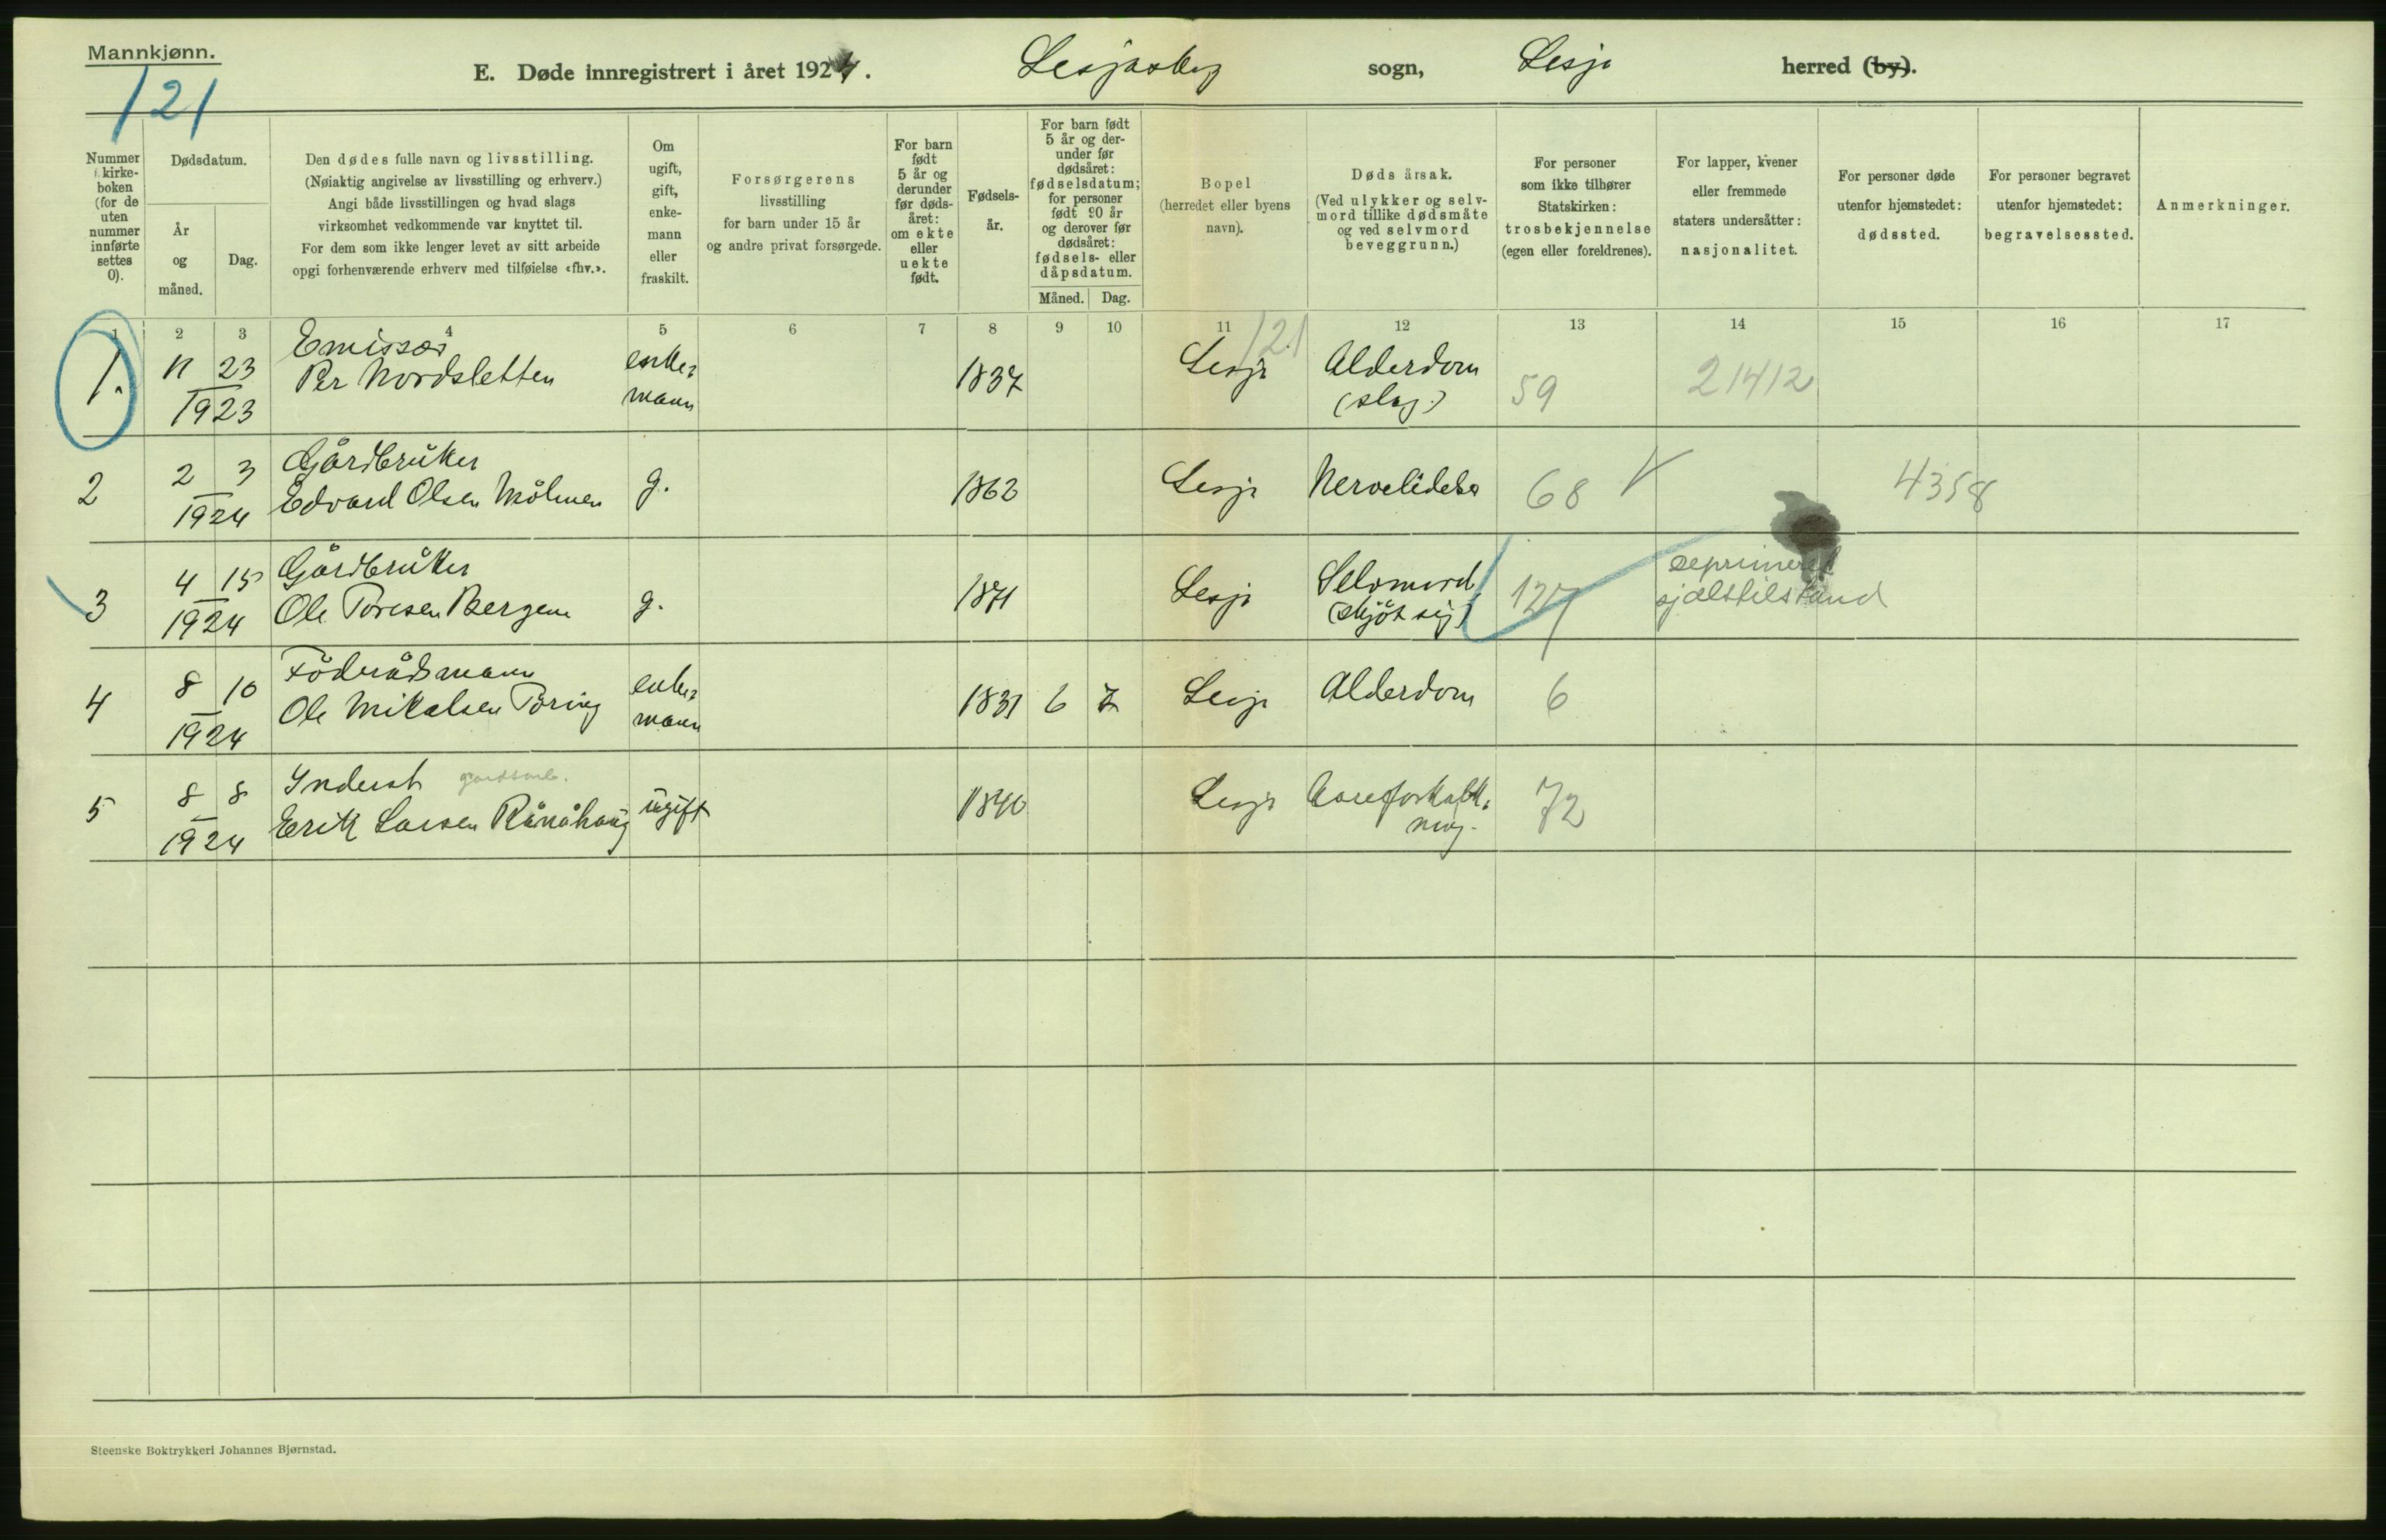 Mannkjønn.
121
E. Døde innregistrert i året 1924.
Lesjaskog sogn, Lesja herred (by).
Nummer i kirkeboken (for de uten nummer innførte settes 0).
Dødsdatum.
År og måned.
Dag.
Den dødes fulle navn og livsstilling.
(Nøiaktig angivelse av livsstilling og erhverv.)
Angi både livsstillingen og hvad slags
virksomhet vedkommende var knyttet til.
For dem som ikke lenger levet av sitt arbeide
opgi forhenværende erhverv med tilføielse «fhv.».
Om ugift, gift, enkemann eller fraskilt.
Forsørgerens
livsstilling
for barn under 15 år
og andre privat forsørgede.
For barn født 5 år og derunder før dødsåret: om ekte eller uekte født.
Fødselsår.
For barn født 5 år og derunder før dødsåret: fødselsdatum; for personer født 90 år og derover før dødsåret: fødsels- eller dåpsdatum.
Måned. Dag.
Bopel
(herredet eller byens
navn).
Dødsårsak.
(Ved ulykker og selvmord tillike dødsmåte og ved selvmord beveggrunn.)
For personer
som ikke tilhører
Statskirken:
trosbekjennelse
(egen eller foreldrenes).
For lapper, kvener
eller fremmede
staters undersåtter:
nasjonalitet.
For personer døde
utenfor hjemstedet:
dødssted.
For personer begravet
utenfor hjemstedet:
begravelsessted.
Anmerkninger.
1 2 3 4 5 6 7 8 9 10 11 12 13 14 15 16 17
121
1. 11 23 1923 Emissær Per Nordsletten enkemann 1837 Lesja Alderdom (slag.) 59 21412
2 2 3 1924 Gårdbruker Edvard Olsen Mølmen g. 1863 Lesja Nervelidelse 68 V 4358
3 4 15 1924 Gårdbruker Ole Toresen Bergem g. 1871 Lesja Selvmord (skjøt sig) 127 deprimeret sjælstilstand
4 8 10 1924 Föderådsmann Ole Mikalsen Toring enkemann 1831 6 7 Lesja Alderdom 6
5 8 8 1924 Inderst gardsarb. Erik Larsen Rånåhaug ugift 1840 Lesja Aareforkalkning. 72
Steenske Boktrykkeri Johannes Bjørnstad.